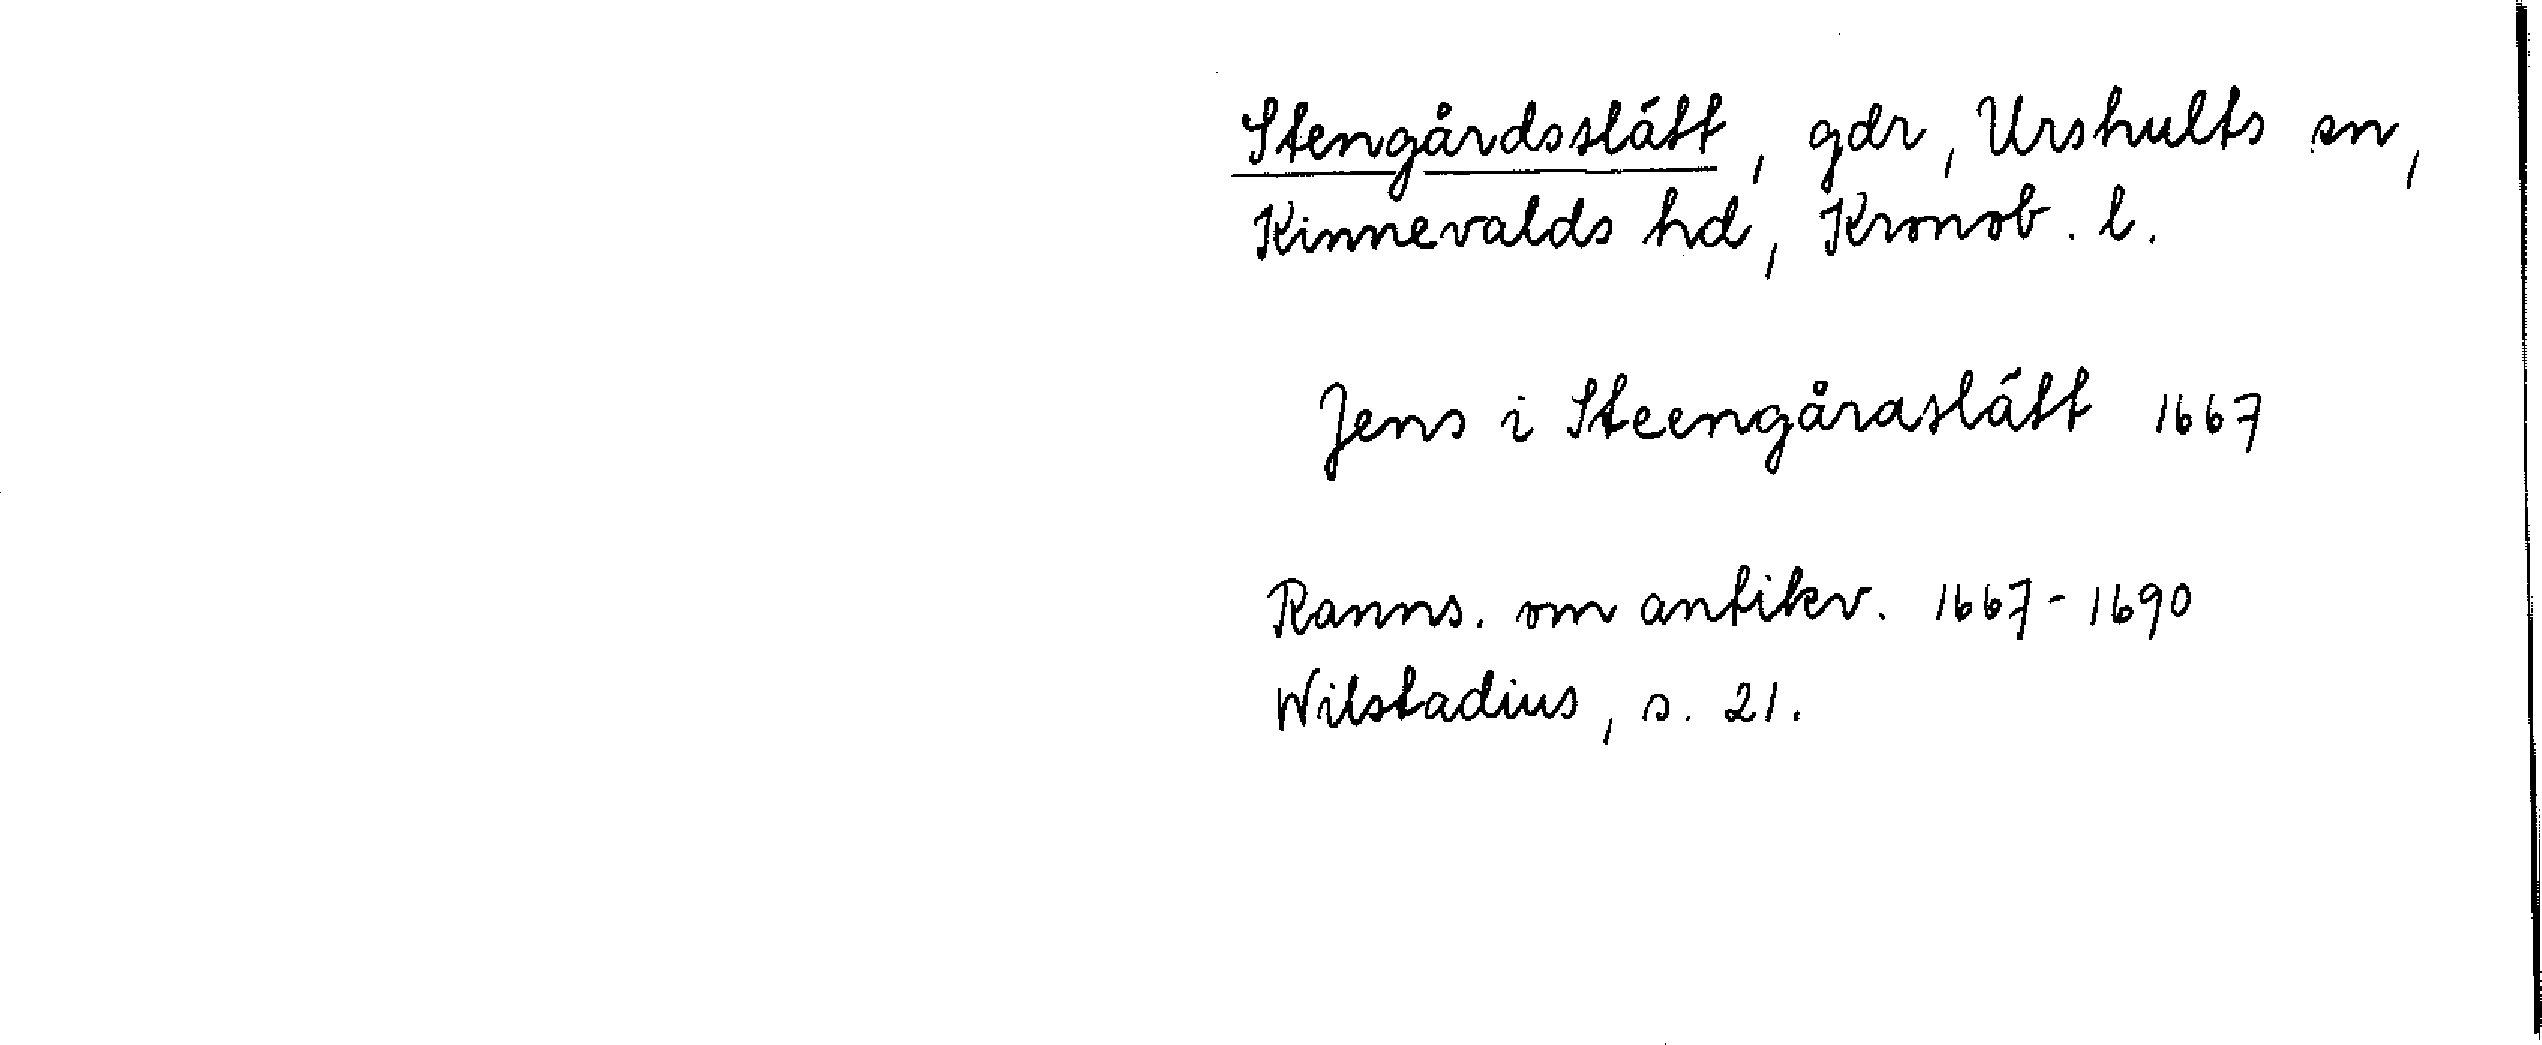 Stengårdsslätt, gdr, Urshults sn,
Kinnevalds hd, Kronob. l.
Jens i Steengåraslätt 1667
Ranns. om antikv. 1667-1690
Wilstadius, s. 21.